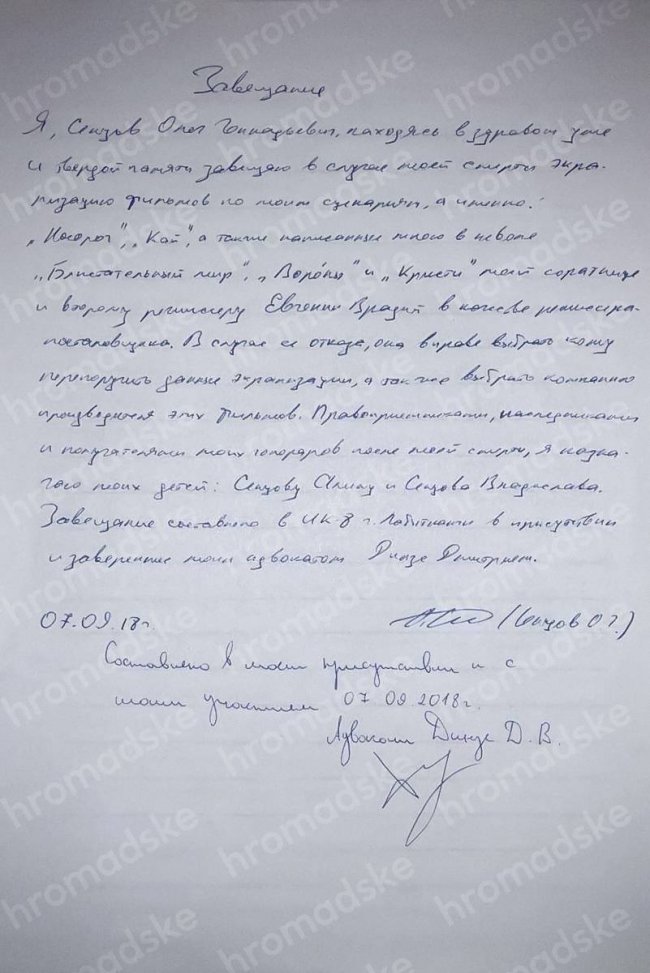 Завещание
Я, Сенцов Олег Геннадьевич, находясь в здравом уме
и твердой памяти завещаю в случае моей смерти экра-
низацию фильмов по моим сценариям, а именно:
„Носорог", „Кай", а также написанные мною в неволе
„Блистательный мир", „Воро́ны" и „Кристи" моей соратнице
и второму режиссеру Евгении Врадий в качестве режиссера-
постановщика. В случае ее отказа, она вправе выбрать кому
перепоручить данные экранизации, а так же выбрать компанию
производителя этих фильмов. Правоприемниками, наследниками
и получателями моих гонораров после моей смерти, я назна-
чаю моих детей: Сенцову Алину и Сенцова Владислава.
Завещание составлено в ИК-8 г. Лабытнанги в присутствии
и заверенное моим адвокатом Динзе Дмитрием.
07.09.18г. (Сенцов О.Г.)
Составлено в моем присутствии и с
моим участием 07 09 2018г.
Адвокат Динзе Д.В.
hromadske